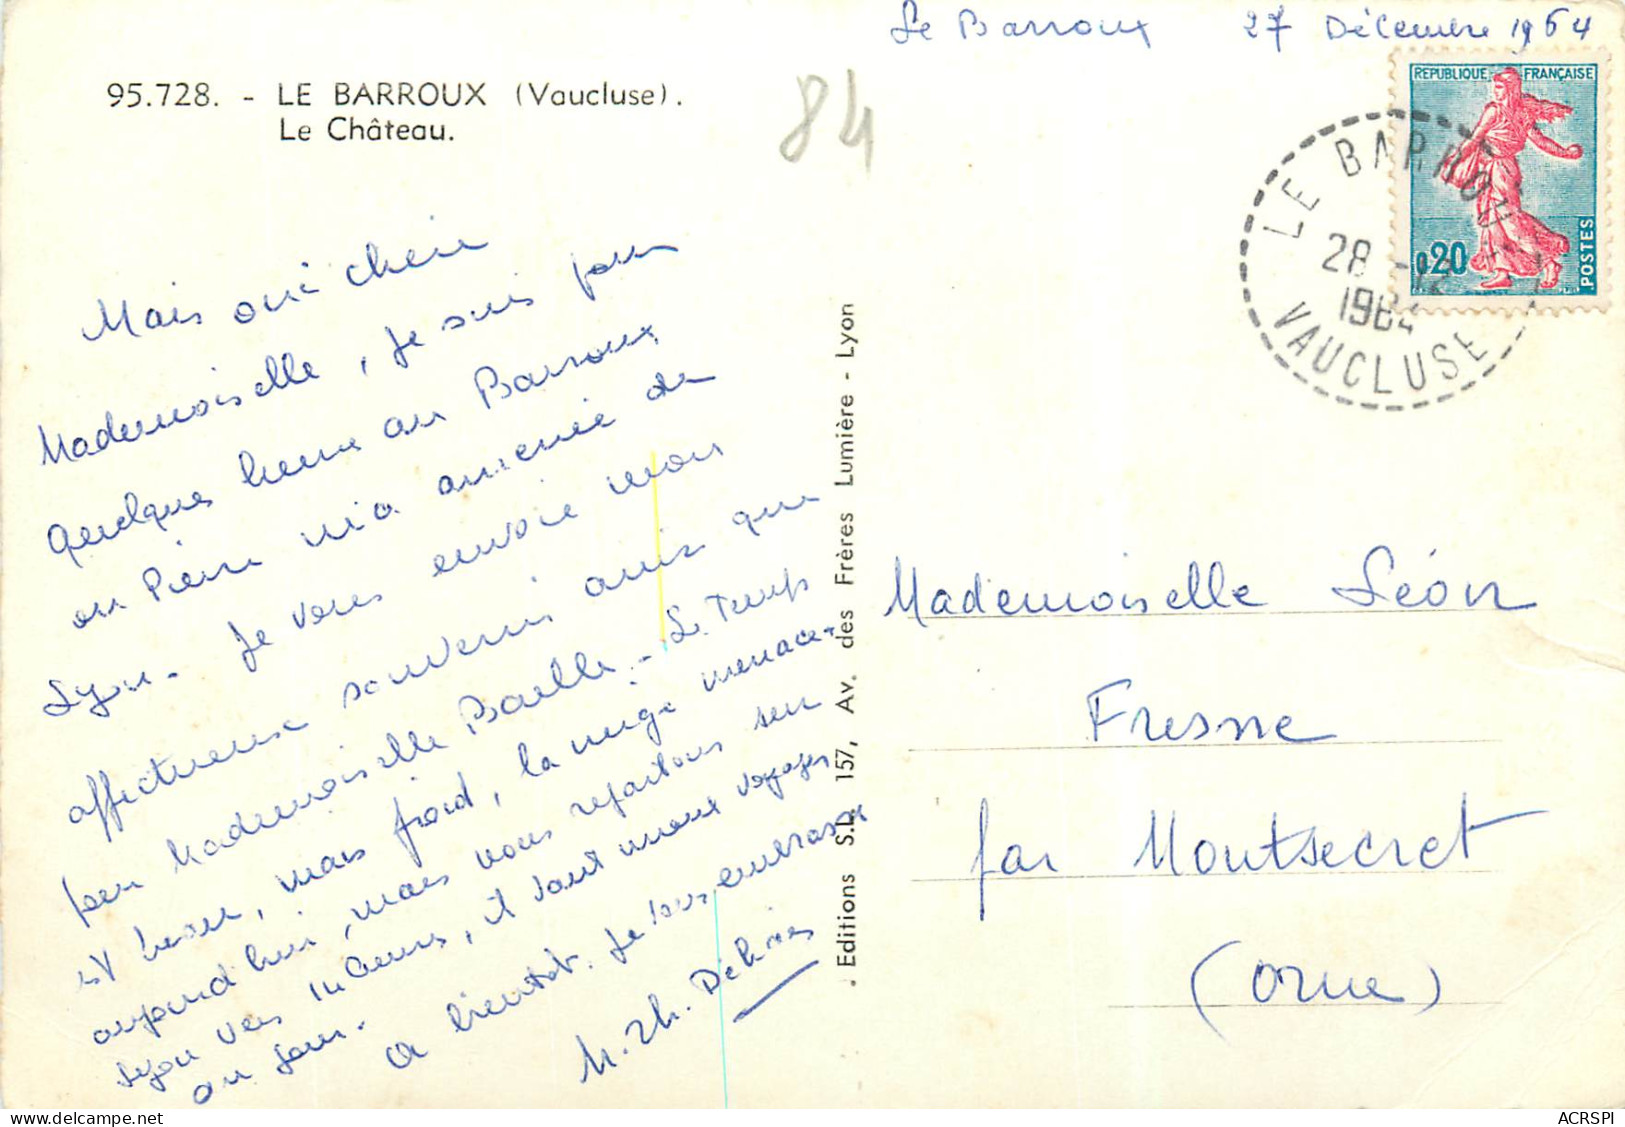 Le Barroux 27 Décembre 1964
95.728. - LE BARROUX (Vaucluse).
Le Château.
84
REPUBLIQUE FRANÇAISE
0,20
POSTES
LE BARROUX
28 -12
1964
VAUCLUSE
Mais oui chère
Mademoiselle, je suis pour
quelques heures au Barroux
où Pierre m'a amenée de
Lyon. Je vous envoie mon
affectueux souvenir ainsi que
pour Mademoiselle Le Temps
est beau, mais froid, la neige menace
aujourd'hui, mais nous repartons sur
Lyon vers 14 heures, il vaut mieux voyager
au jour.
A bientôt. Je vous embrasse
M. Th.
Editions S.L. 157, Av. des Frères Lumière - Lyon
Mademoiselle Léon
Fresne
par Montsecret
(Orne)
ACRSPI